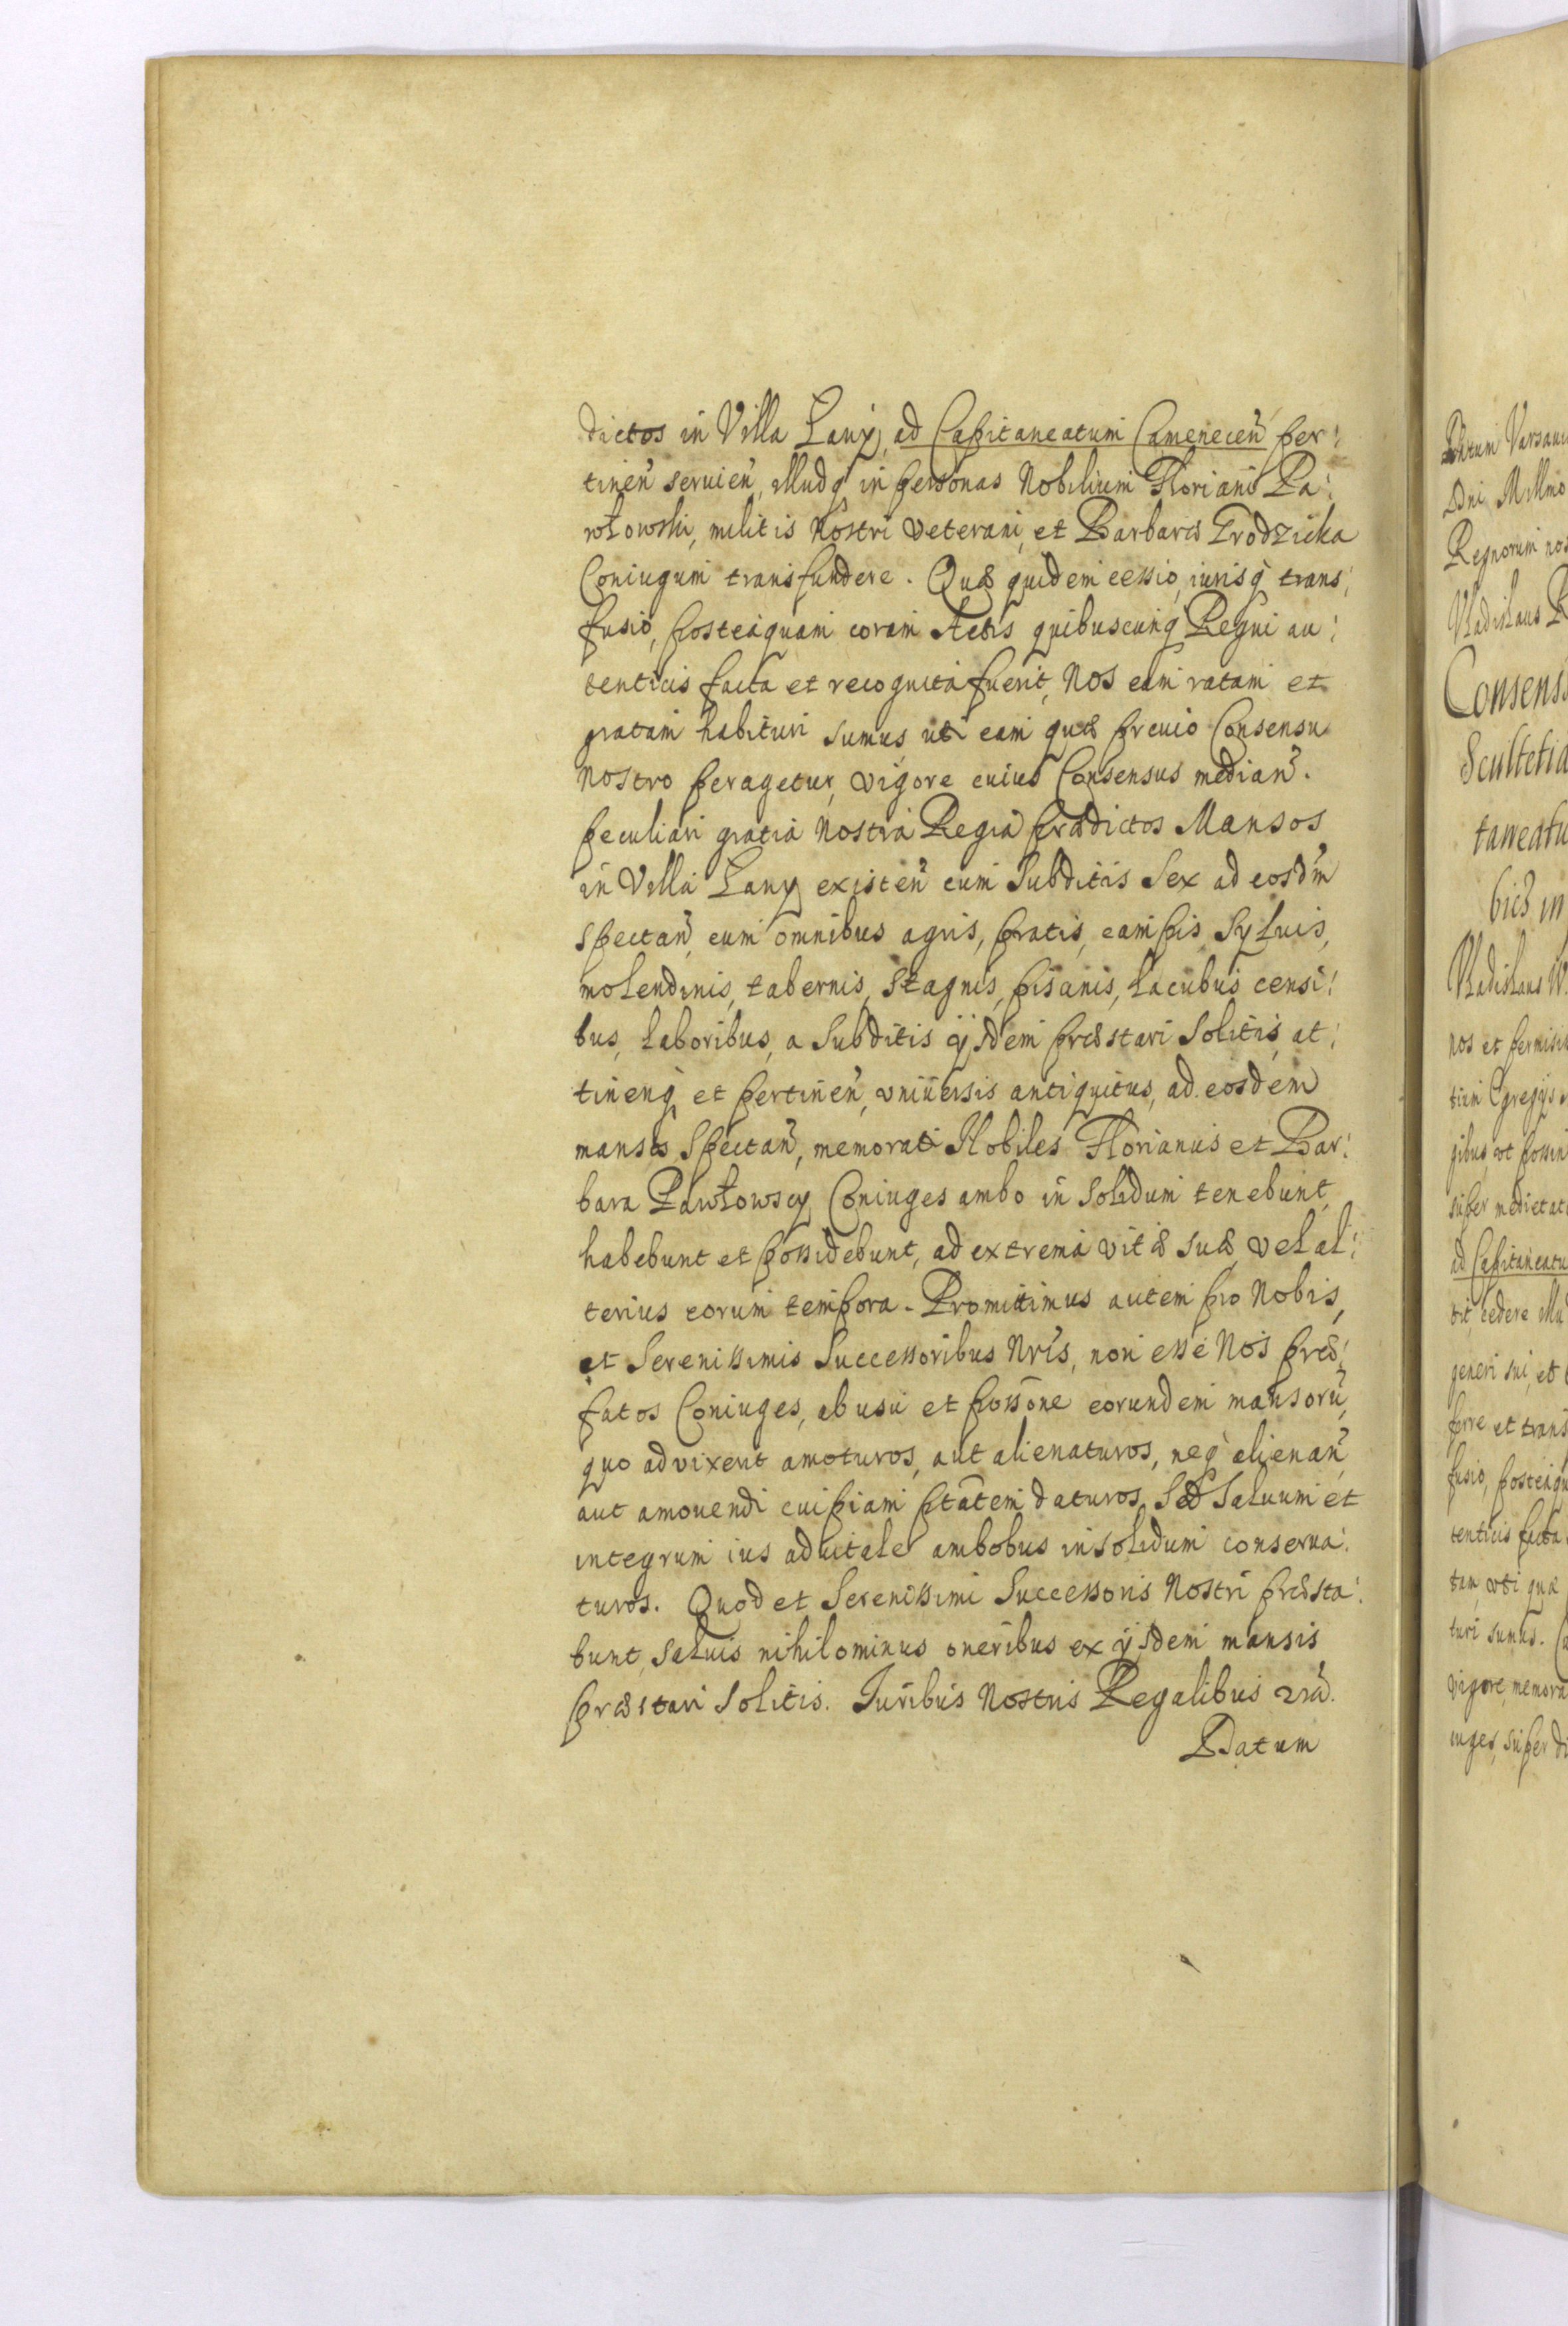 dictos in Villa Lany, ad Capitaneatum Camenecen̄ per:
tinen̄ seruien̄, illudq̨ in personas Nobilium Floriani Pa:
włowski, militis Nostri veterani, et Barbaræ Grodzicka
Coniugum transfundere. Quæ quidem cessio, iurisq̨ trans:
fusio, posteaquam coram Actis quibuscunq̨ Regni au:
tenticis facta et recognita fuerit, Nos eam ratam et
gratam habituri sumus, uti eam quæ preuio Consensu
nostro peragetur, vigore cuius Consensus median̄.
peculiari gratia Nostra Regia prædictos Mansos
in Villa Lany existen̄ cum Subditis Sex ad eosdm̄
spectan̄, cum omnibus agris, pratis, campis Syluis,
molendinis, tabernis, stagnis, pisānis, lacubus censi:
bus, laboribus, a Subditis ÿsdem præstari Solitis, at:
tinenq̨ et pertinen̄, vniuersis antiquitus, ad eosdem
mansos Spectan̄, memorati Nobiles Florianus et Bar:
bara Pawłowscy Coniuges ambo in Solidum tenebunt,
habebunt et possidebunt, ad extrema vitæ suæ, vel al:
terius eorum tempora. Promittimus autem pro Nobis,
et Serenissimis Successoribus Nrīs, non esse Nos præ:
fatos Coniuges, ab usu et possōne eorundem mansorū,
quo ad vixerit amoturos, aut alienaturos, neq̨ alienan̄
aut amouendi cuipiam ptātem daturos. Sed Saluum et
integrum ius aduitale ambobus in solidum conserua:
turos. Quod et Serenissimi Successoris Nostri præsta:
bunt, Saluis nihilominus oneribus ex ÿsdem mansis
præstari Solitis. Juribus Nostris Regalibus
Datum
Datum Varsaui
Dni Millmo
Regnorum nos
Vladislaus R
Consensu
Scultetia
taneatu
bieȝ in
Vladislaus
nos et permisis
tum Egregijs
gibus vt possin
super medietat
ad Capitaneatu
tit, cedere illu
generi sui, et
ferre et trans
fusio, posteaqu
tenticis facta
tam, vti quæ
turi sumus.
vigore, memora
iuges, super di